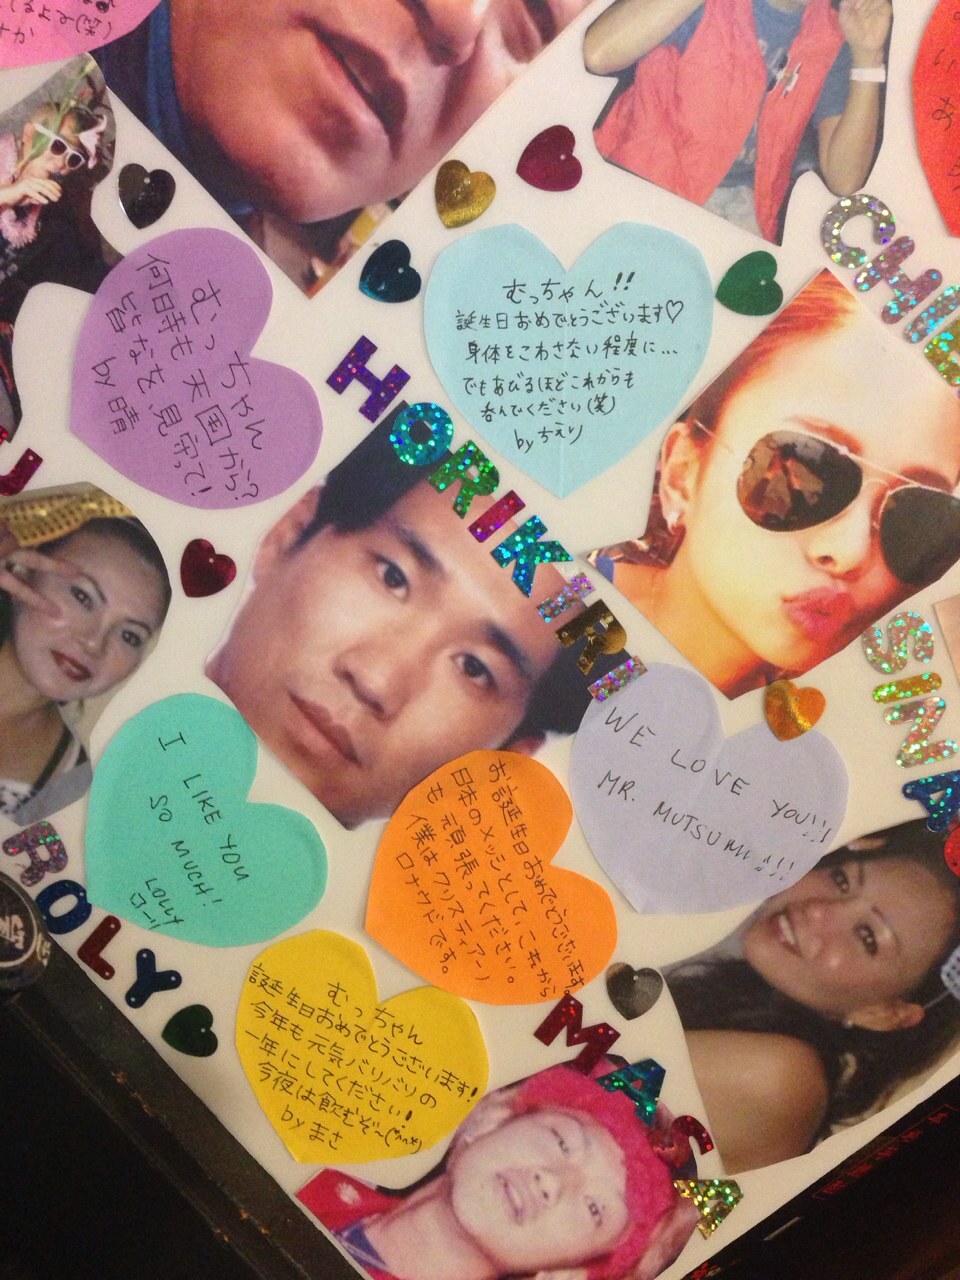 てるよみ(笑)
むっちゃん
何時も天国から?
皆なを、見守って!
by 晴
むっちゃん!!
誕生日おめでとうございます♡
身体をこわさない程度に…
でもあびるほどこれからも
呑んでください(笑)
by ちえり
CHE
HORIKIRI
SINA
WE LOVE YOU!!!
MR. MUTSUMI!!!
I LIKE YOU
SO MUCH!
LOLLY
ROLY
お誕生日おめでとうございます。
日本のメッシとして、これから
も頑張ってください。
僕はクリスティアーノ
ロナウドです。
むっちゃん
誕生日おめでとうございます!
今年も元気バリバリの
一年にしてください!
今夜は飲むぞ~(^^)
by まさ
MASA